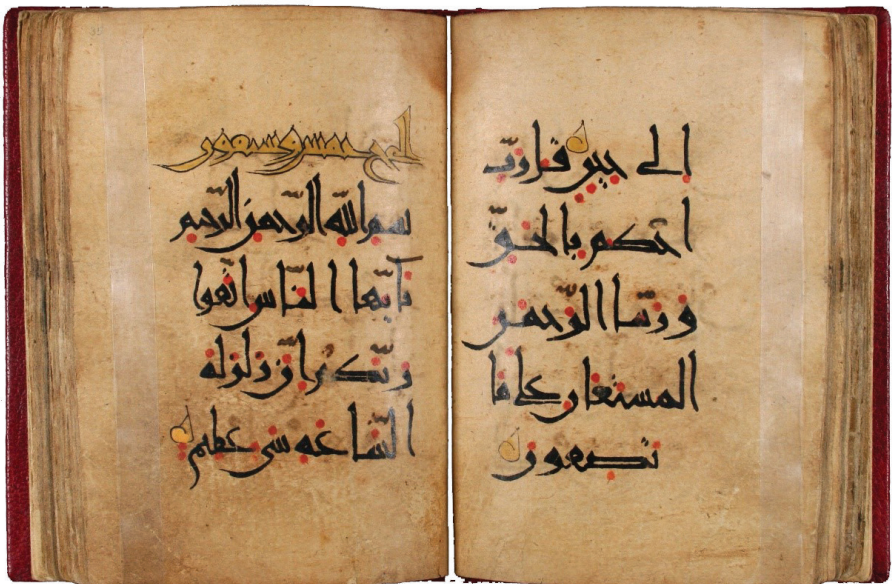 الى حين قل رب
احكم بالحق
وربنا الرحمن
المستعان على ما
تصفون
الحج خمس وسبعون
بسم الله الرحمن الرحيم
يايها الناس اتقوا
ربكم ان زلزلة
الساعة شى عظيم